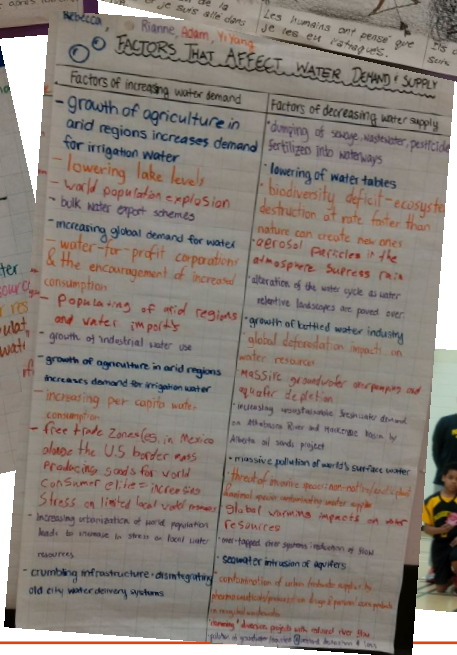 je suis allé dans
Les humains ont pensé que
je les eu l'attaques.
Rebecca, Rianne, Adam, Yiyang
FACTORS THAT AFFECT WATER DEMAND & SUPPLY
Factors of increasing water demand
- growth of agriculture in
arid regions increases demand
for irrigation water
- lowering lake levels
- world population explosion
- bulk water export schemes
- increasing global demand for water
- water-for-profit corporations
& the encouragement of increased
consumption
- Populating of arid regions
and water imports
- growth of industrial water use
- growth of agriculture in arid regions
increases demand for irrigation water
- increasing per capita water
consumption
- free trade zones(es. in Mexico
along the U.S border eats
Producing goods for world
consumer elite = increasing
Stress on limited local water resources
- Increasing urbanization of world population
leads to increase in stress on local water
resources
- crumbling infrastructure - disintegrating
old city water delivery systems
Factors of decreasing water supply
- dumping of sewage, wastewater, pesticide
fertilizer into waterways
- lowering of water tables
- biodiversity deficit - ecosyste
destruction at rate faster than
nature can create new ones
- aerosol particles in the
atmosphere supress rain
- alteration of the water cycle as water
retentive landscapes are paved over
- growth of bottled water industry
- global deforestation impacts on
water resources
- massive groundwater overpumping and
aquifer depletion
- Increasing unsustainable freshwater demand
on Athabasca River and Mackenzie Basin by
Alberta oil sands project
- massive pollution of world's surface water
- threat of invasive species
global warming impacts on water
resources
- over-tapped river systems - reduction of flow
- seawater intrusion of aquifers
- contamination of urban freshwater supplies by
pharmaceuticals
- damming & diversion projects with reduced river flow